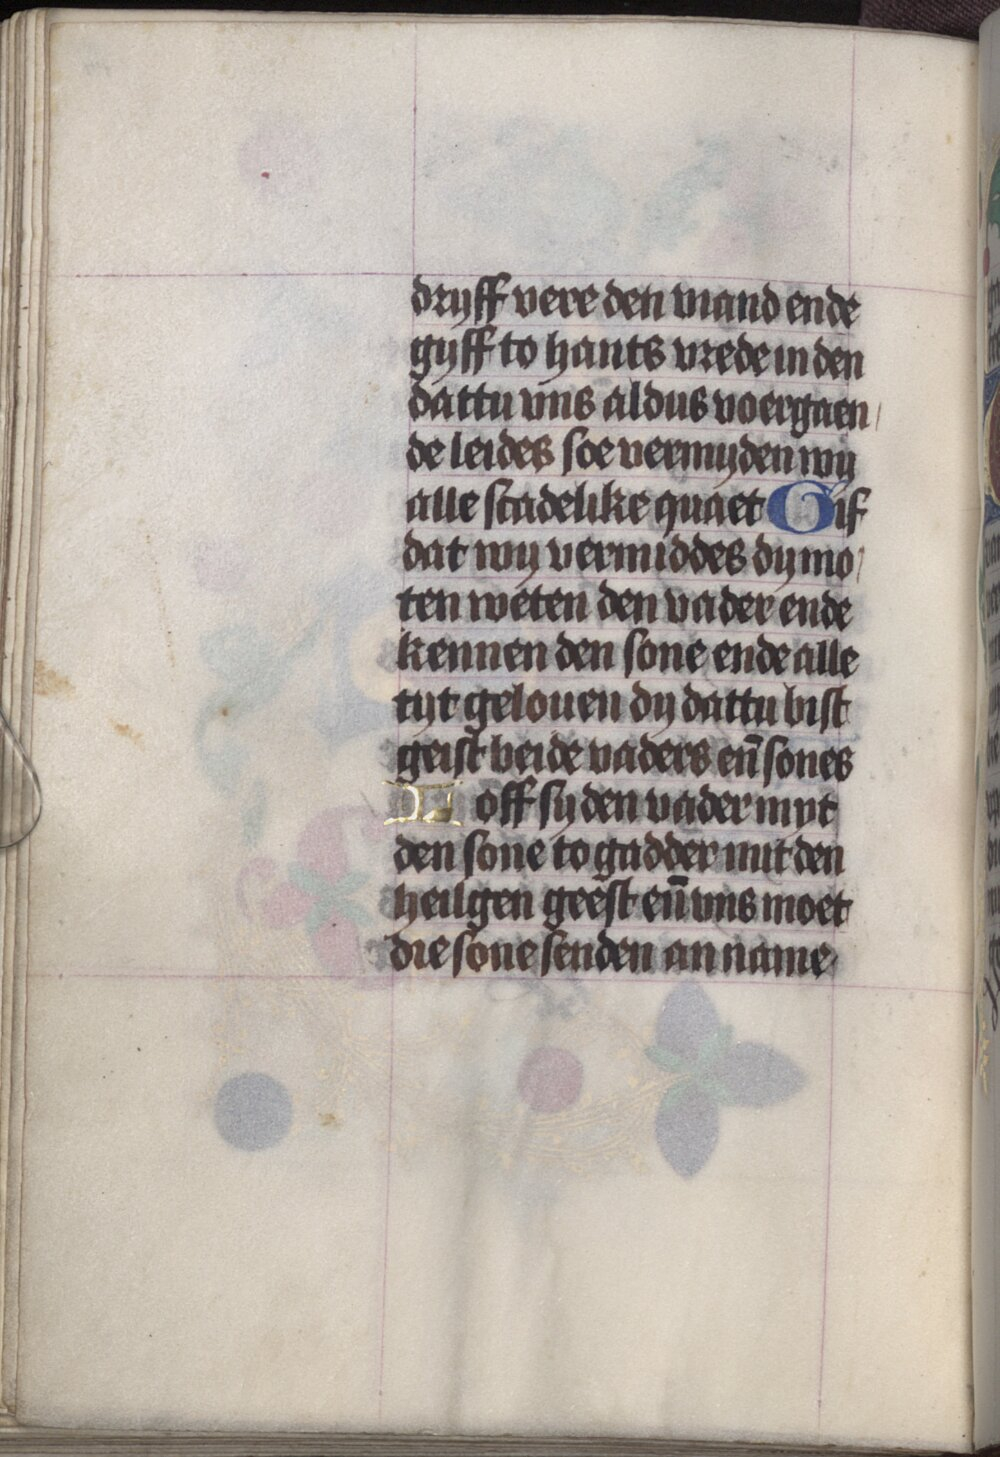 dryff vere den viand ende
gyff to hants vrede in den
dattu vns aldus voergaen
de leides soe vermyden wy
alle scadelike quaet Gif
dat wy vermiddes dy mo
ten weten den vader ende
kennen den sone ende alle
tyt gelouen dy dattu bist
geist beide vaders en̄ sones
Loff sy den vader myt
den sone to gadder mit den
heilgen geest en̄ vns moet
die sone senden an name